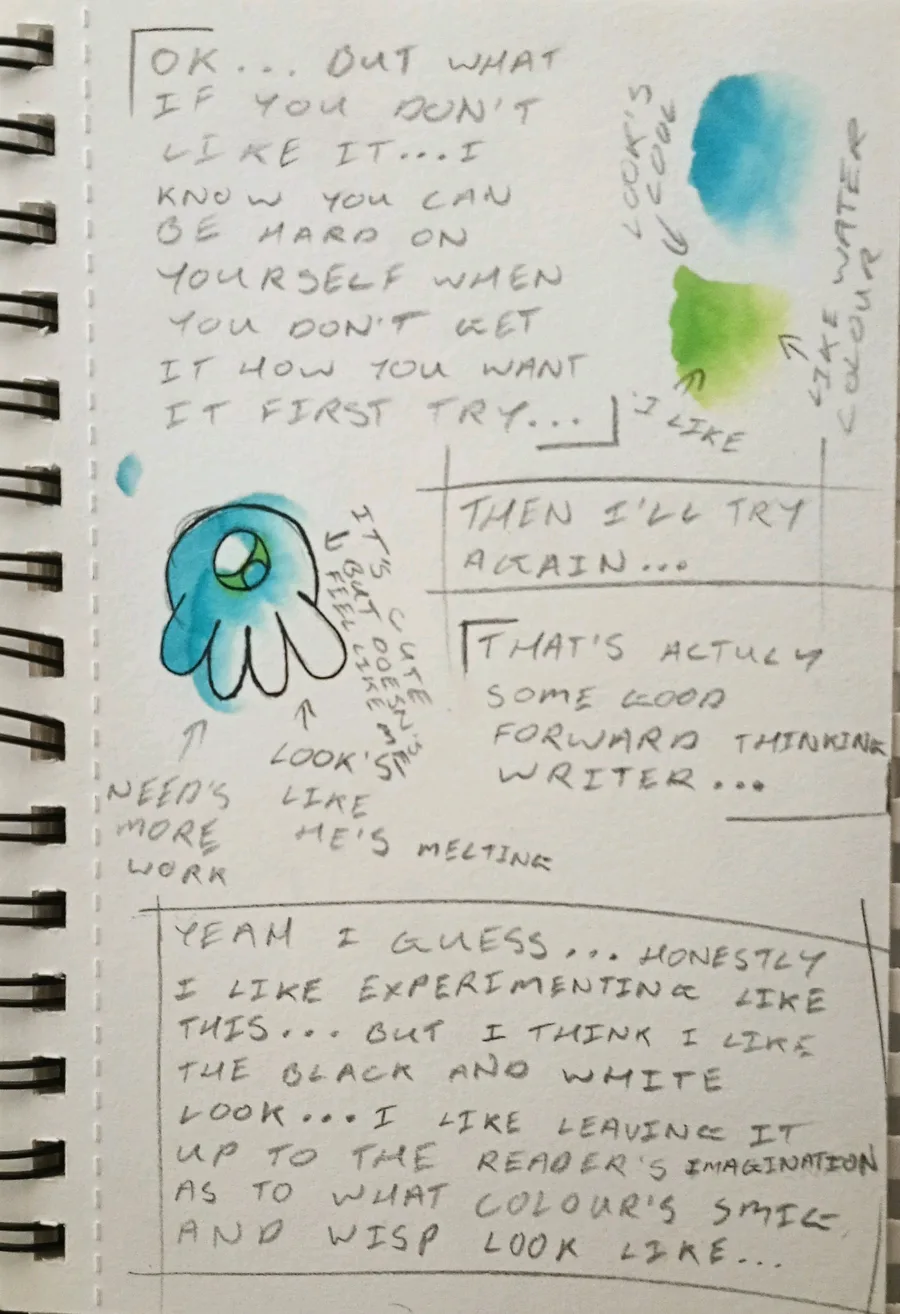 OK... BUT WHAT
IF YOU DON'T
LIKE IT...I
KNOW YOU CAN
BE HARD ON
YOURSELF WHEN
YOU DON'T GET
IT HOW YOU WANT
IT FIRST TRY...
LOOK'S
COOL
LIKE WATER
COLOUR
I LIKE
THEN I'LL TRY
AGAIN...
IT'S CUTE
BUT DOESN'T
FEEL LIKE ME
THAT'S ACTULY
SOME GOOD
FORWARD THINKING
WRITER...
NEED'S
MORE
WORK
LOOK'S
LIKE
HE'S MELTING
YEAH I GUESS... HONESTLY
I LIKE EXPERIMENTING LIKE
THIS... BUT I THINK I LIKE
THE BLACK AND WHITE
LOOK...I LIKE LEAVING IT
UP TO THE READER'S IMAGINATION
AS TO WHAT COLOUR'S SMILE
AND WISP LOOK LIKE...